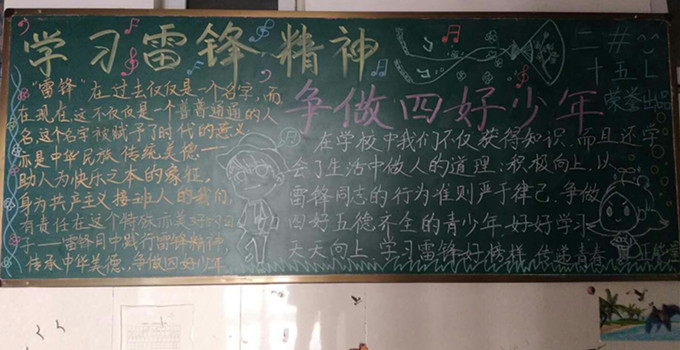 学习雷锋精神
争做四好少年
二十五
荣誉出品
"雷锋"在过去仅仅是一个名字,而
在现在这不仅仅是一个普普通通的人
名,这个名字被赋予了时代的意义
亦是中华民族传统美德——
助人为快乐之本的象征,
身为共产主义接班人的我们,
有责任在这个特殊亦美好的日
子——雷锋月中践行雷锋精神
传承中华美德、争做四好少年
在学校中我们不仅获得知识,而且还学
会了生活中做人的道理:积极向上,以
雷锋同志的行为准则严于律己,争做
四好五德齐全的青少年.好好学习
天天向上,学习雷锋好榜样,传递青春